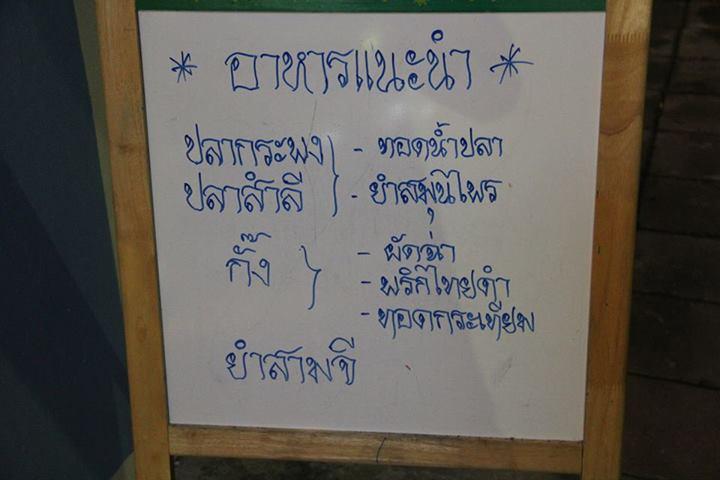 * อาหารแนะนำ *
ปลากะพง } - ทอดน้ำปลา
ปลาสำลี } - ยำสมุนไพร
กั๊ง } - ผัดฉ่า
- พริกไทยดำ
- ทอดกระเทียม
ยำสามจี